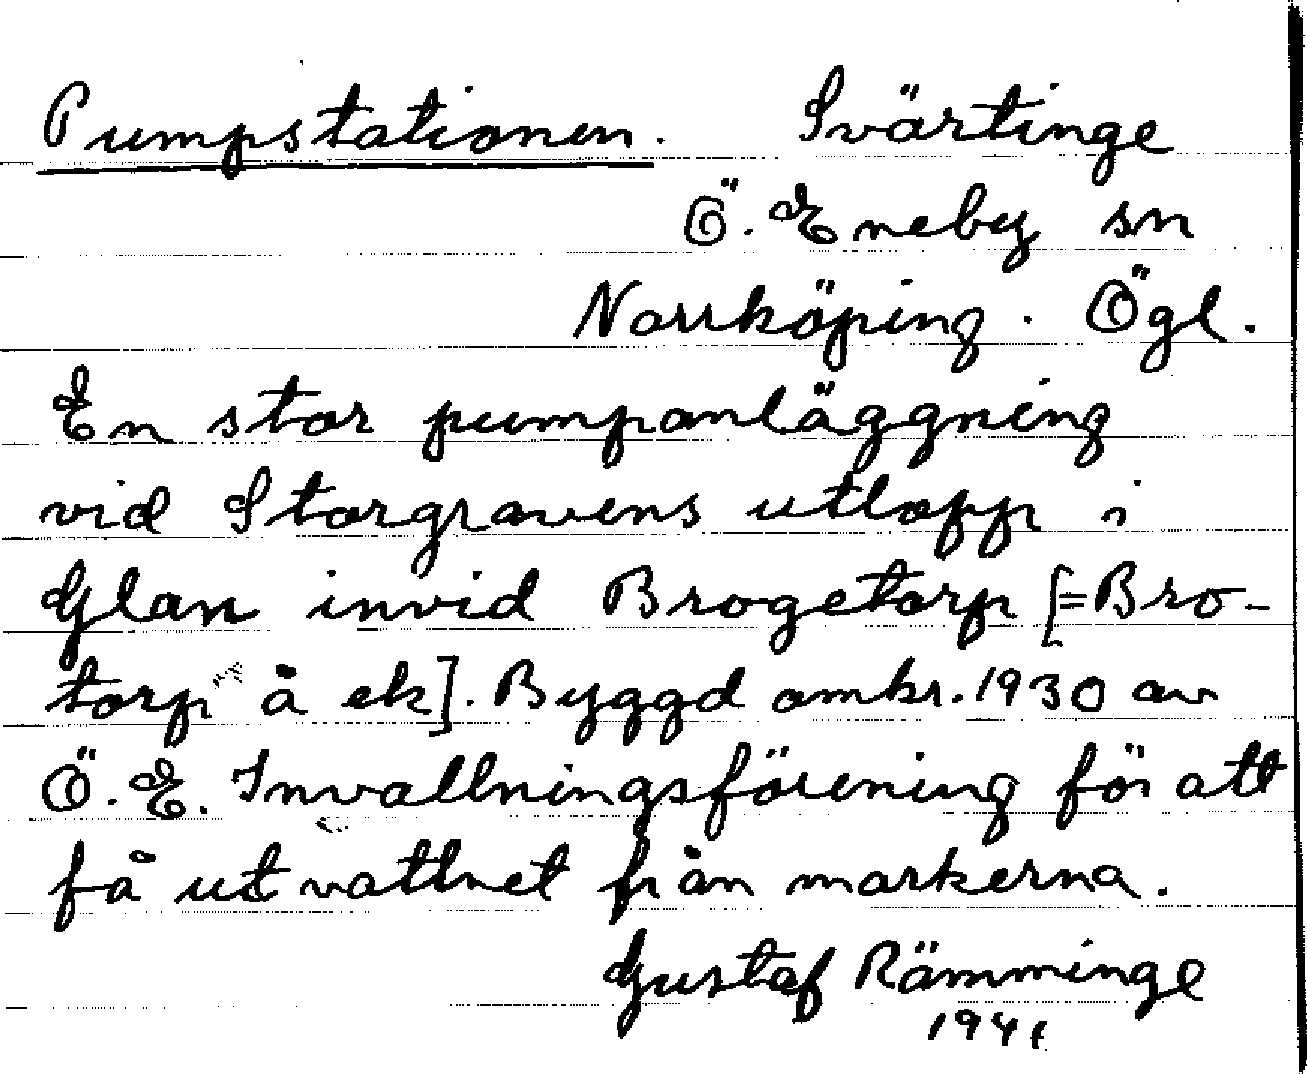 Pumpstationen. Svärtinge
Ö. Eneby sn
Norrköping. Ögl.
En stor pumpanläggning
vid Storgravens utlopp i
Glan invid Brogetorp [=Bro-
torp å ek]. Byggd omkr. 1930 av
Ö. E. Invallningsförening för att
få ut vattnet från markerna.
Gustaf Rämminge
1941